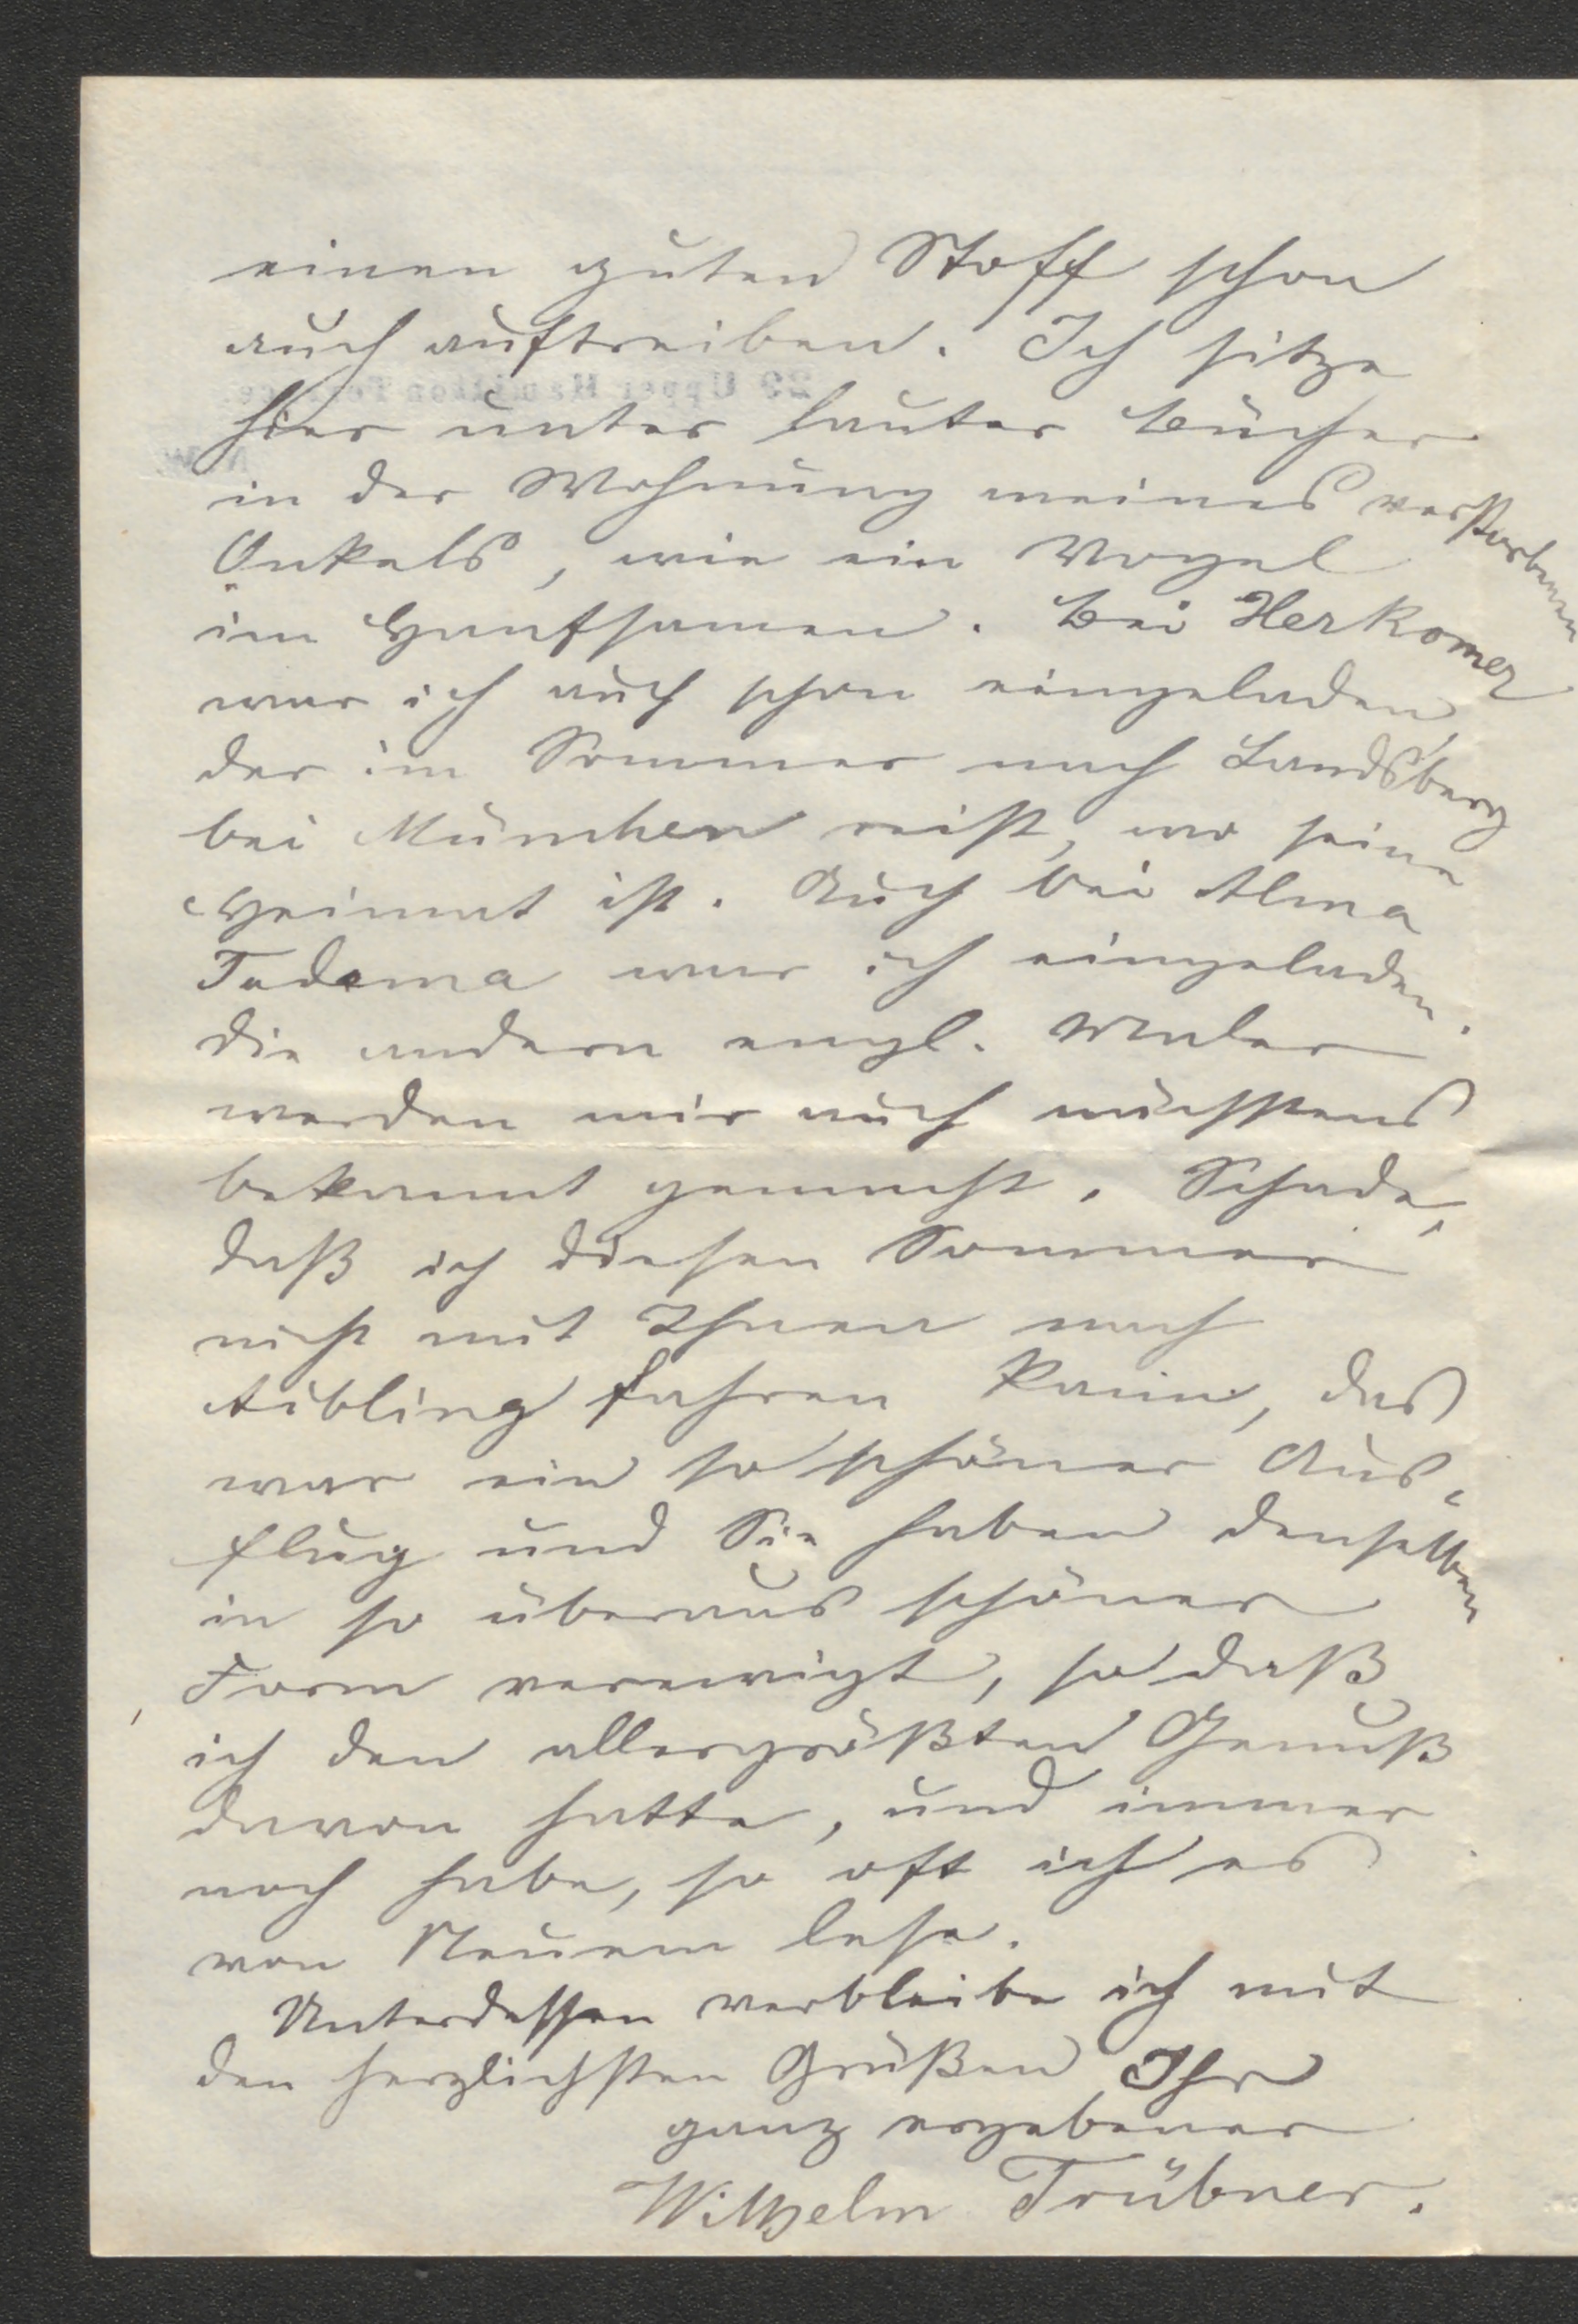 einen guten Stoff schon
auch auftreiben. Ich sitze
hier unter lauter Bücher
in der Wohnung meines verstorbenen
Onkels, wie ein Vogel
im Hanfsamen. Bei Herkomer
war ich auch schon eingeladen,
der im Sommer nach Landsberg
bei München reist, wo seine
Heimat ist. Auch bei Alma
Tadema war ich eingeladen.
Die andern engl. Maler
werden mir auch nächstens
bekannt gemacht. Schade,
daß ich diesen Sommer
nicht mit Ihnen nach
Aibling fahren kann, das
war ein so schöner Aus-
flug und Sie haben denselben
in so überaus schöner
Form verewigt, so daß
ich den allergrößten Genuß
davon hatte, und immer
noch habe, so oft ich es
von Neuem lese.
Unterdessen verbleibe ich mit
den herzlichsten Grüßen Ihr
ganz ergebener
Wilhelm Trübner.